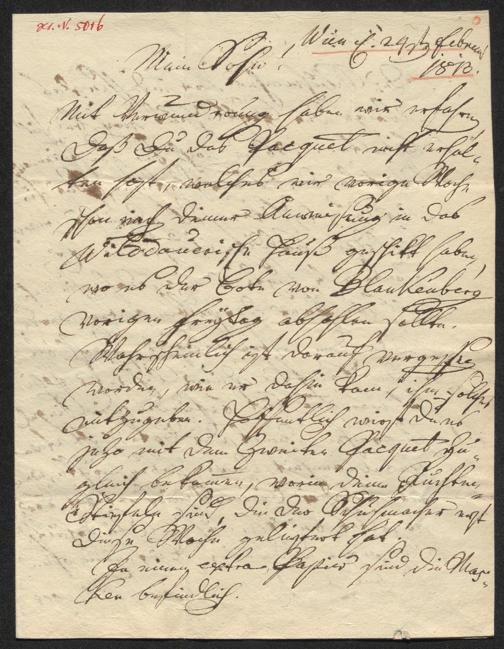 Wien d. 24t Februar
1813.
Mein Sohn!
Mit Verwunderung haben wir erfahren,
daß Du das Pacquet nicht erhal-
ten hast, welches wir vorige Woche
schon nach deiner Anweisung in das
Wilddauerische Hauß geschikt haben,
wo es der Bote von Blankenberg
vorigen Freytag abhohlen sollte.
Wahrscheinlich ist darauf vergessen
worden, wie er dahin kam, ihm solches
mitzugeben. Hoffentlich wirst du es
jezo mit dem zweiten Pacquet zu-
gleich bekommen, worin deine Juchten-
Stiefeln sind, die der Schuhmacher erst
diese Woche geliefert hat.
In einem extra Papier sind die Mas-
ken befindlich.